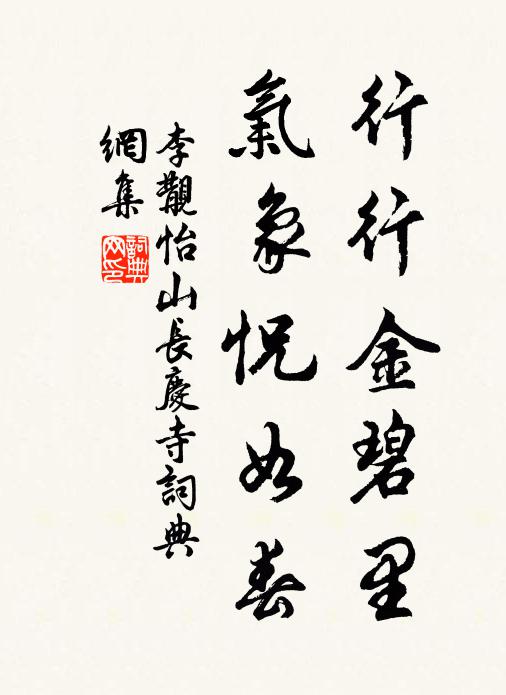 行行金碧里
氣象怳如春
李觀怡山長慶寺詞典
網集
詞典网印